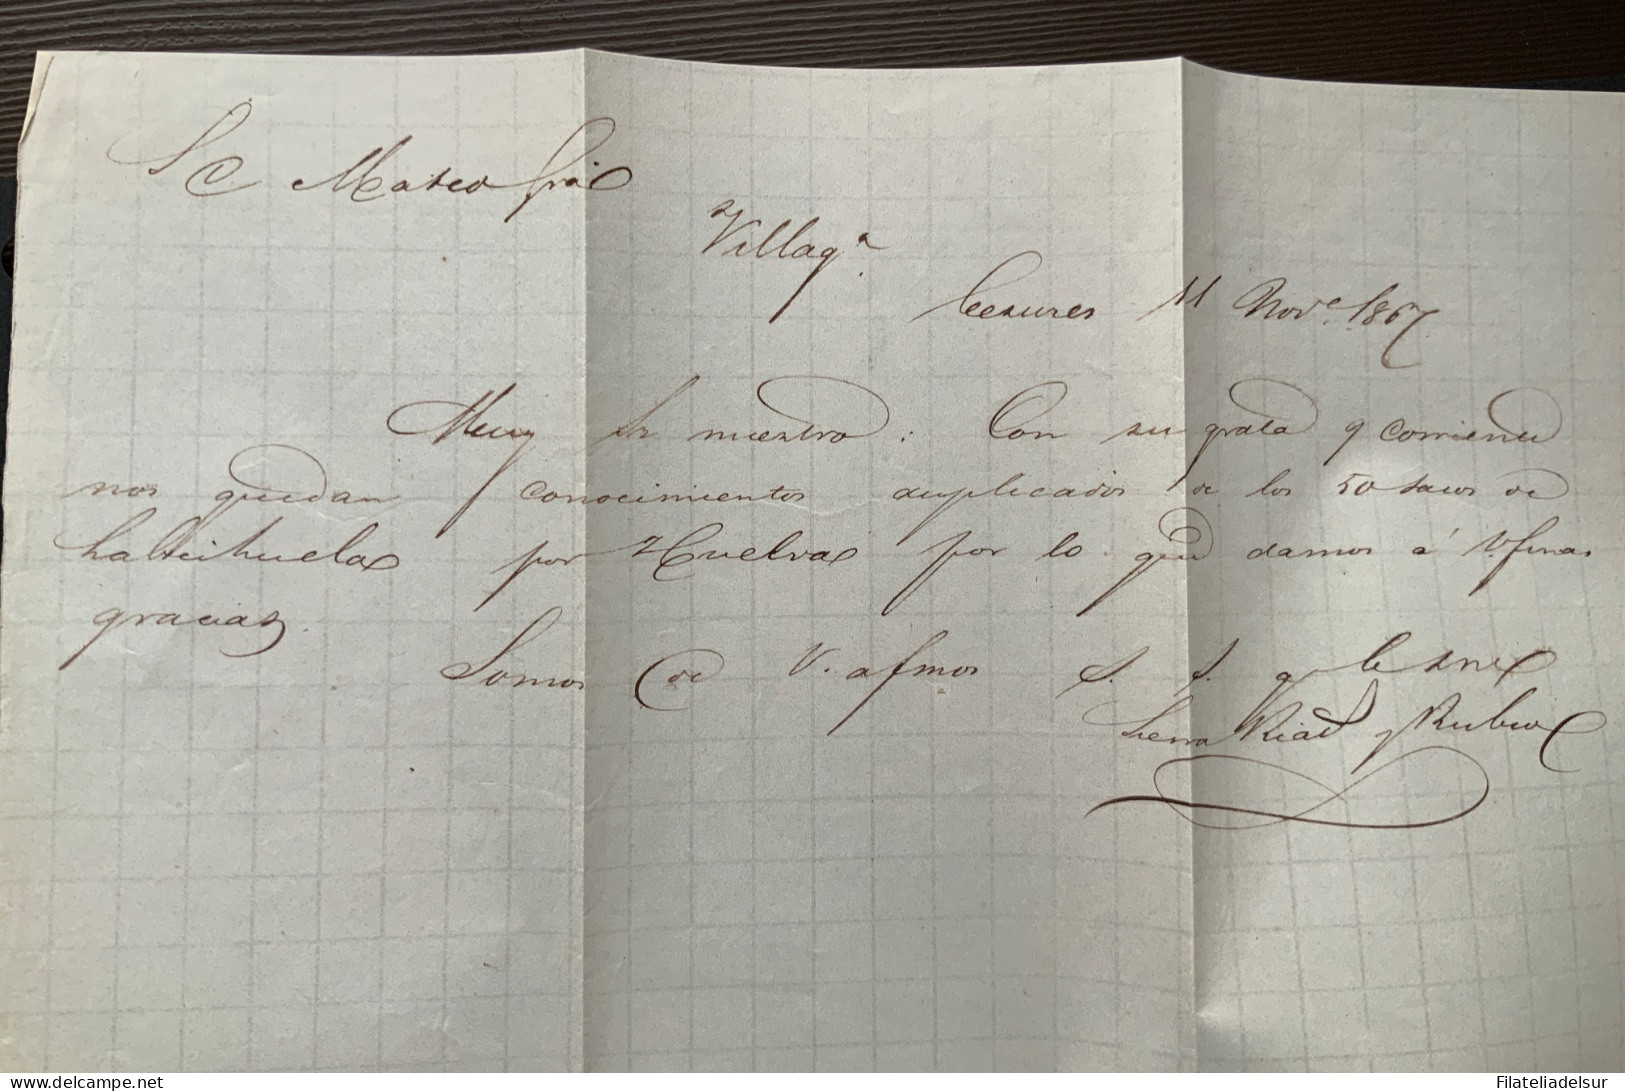 Mateo
Villagª
Cesures 11 Novᵉ 1867
Muy Sr nuestro: Con su grata 9 corriente
nos quedan conocimientos duplicados de los 50 sacos de
habichuela por Huelva por lo que damos á V. finas
gracias.
Somos de V. afmos S. S. q b s m
Rial y Rubio
Filateliadelsur